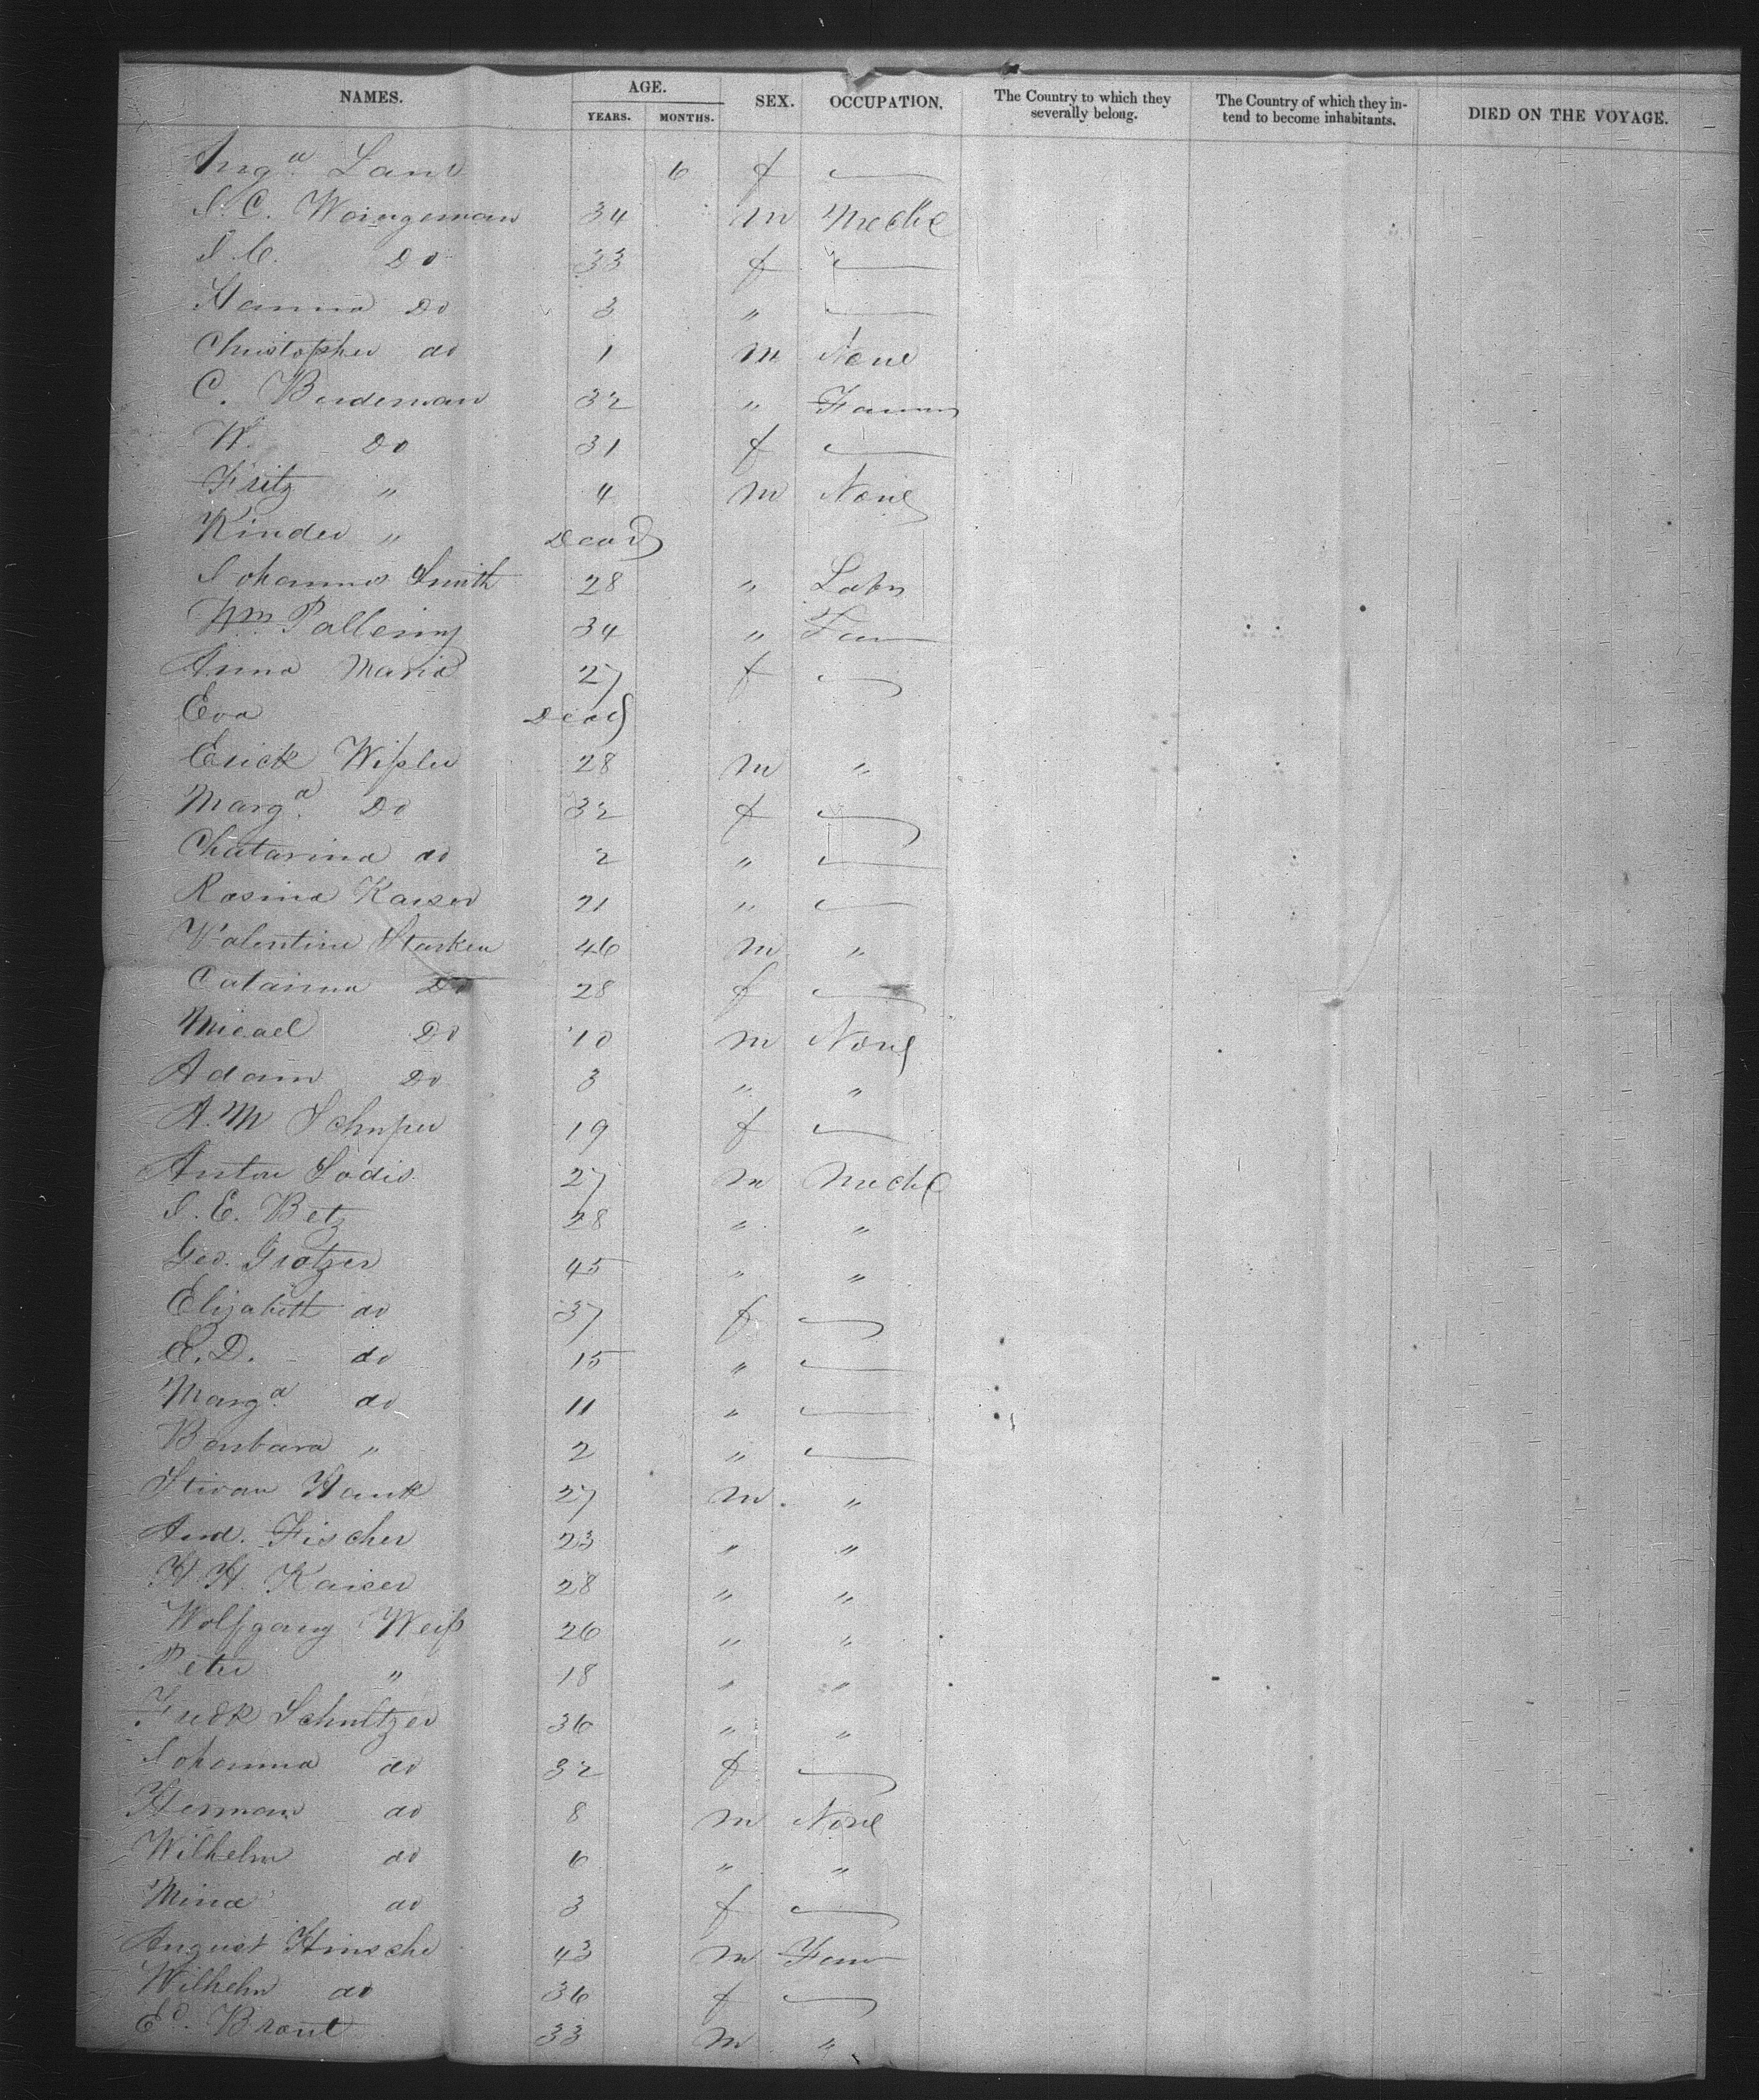 NAMES. AGE. YEARS. MONTHS. SEX. OCCUPATION. The Country to which they severally belong. The Country of which they intend to become inhabitants. DIED ON THE VOYAGE.
Augᵃ 6 f —
J. C. Waingeman 34 m Meche
J. C. Do 33 f —
Hanna Do 3 " —
Christopher do 1 m None
C. Bendeman 32 " Farmer
W. Do 31 f —
Fritz " 4 m None
Kinder " Dead
Johannes Smith 28 " Labr
Wm 34 " Farm
Anna Maria 27 f —
Eva Dead
Erick Wißler 28 m "
Margᵃ Do 32 f —
Chatarina do 2 " —
Rosina Kaiser 21 " —
Valentine Starken 46 m "
Catarina Do 28 f —
Micael Do 10 m None
Adam Do 3 " "
A. M 19 f —
Anton 27 m Meche
J. E. Betz 28 " "
Geo. Gratzer 45 " "
Elizabeth do 37 f —
E. D. do 15 " —
Margᵃ do 11 " —
Barbara " 2 " —
Stivan Hank 27 m "
And. Fischer 23 " "
H. H. Kaiser 28 " "
Wolfgang Weiß 26 " "
Peter " 18 " "
Fredk Schultzer 36 " "
Johanna do 32 f —
Herman do 8 m None
Wilhelm do 6 " "
Mina do 3 f —
August Hinsche 43 m Farm
Wilhelm do 36 f —
Ed. Brant 33 m "